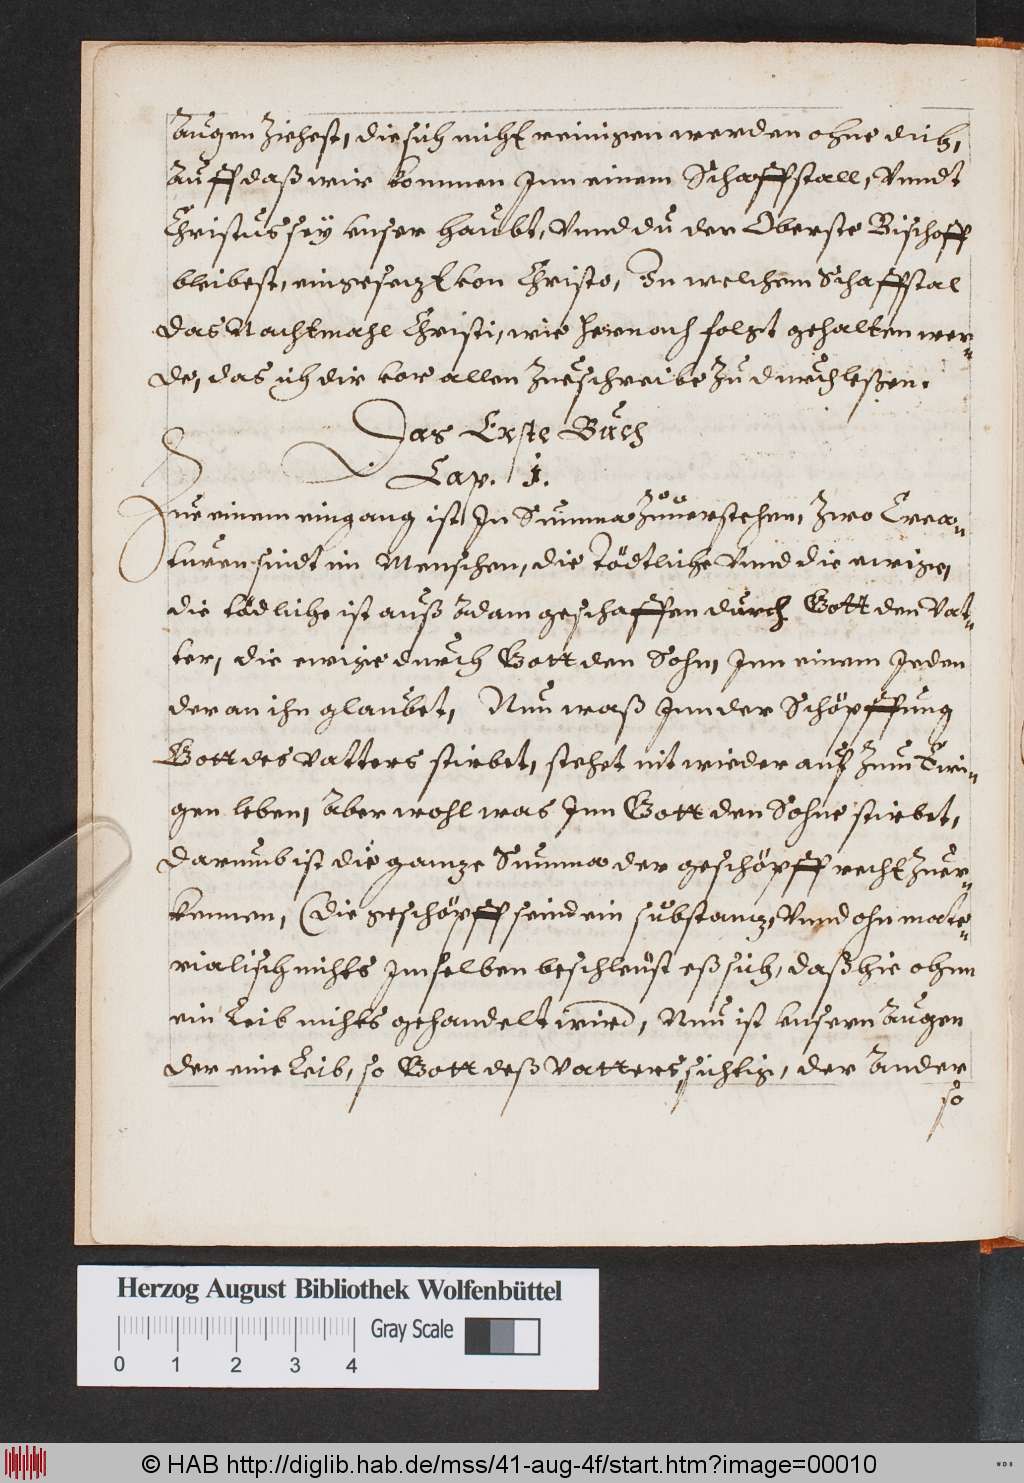 Augen Ziehest, die sich nicht reinigen werden ohne dich,
Auff daß wir kommen Inn einem Schaffstall, Vnndt
Christus sey vnser Haubt, Vnnd du der Oberste Bischoff
bleibest, eingesetzt von Christo, In welchem Schaffstal
das Nachtmahl Christi, wie hernach folgt gehalten wer=
de, das ich dir vor allen Zueschreibe Zu durchleßen.
Das Erste Buch
Cap. 1.
Zue einem eingang ist In Summa Zuuerstehen, Zwo Crea=
turen sindt im Menschen, die Tödtliche Vnnd die ewige,
die tödliche ist auß Adam geschaffen durch Gott den Vat=
ter, die ewige durch Gott den Sohn, Inn einem Jeden
der an ihn glaubet, Nun waß Inn der Schöpffung
Gott des Vatters stirbet, stehet nit wieder auf Zum Ewi=
gen leben, Aber wohl was Inn Gott den Sohne stirbet,
Darumb ist die gantze Summa der geschöpff recht Zuer=
kennen, (Die geschöpff seind ein substantz, Vnnd ohn mate=
rialisch nichts Im selben beschleust eß sich, daß hie ohnn
ein Leib nichts gehandelt wird, Nun ist vnsern Augen
der eine Leib, so Gott deß Vatters, sichtig, der Ander
so
Herzog August Bibliothek Wolfenbüttel
Gray Scale
0 1 2 3 4
© HAB http://diglib.hab.de/mss/41-aug-4f/start.htm?image=00010